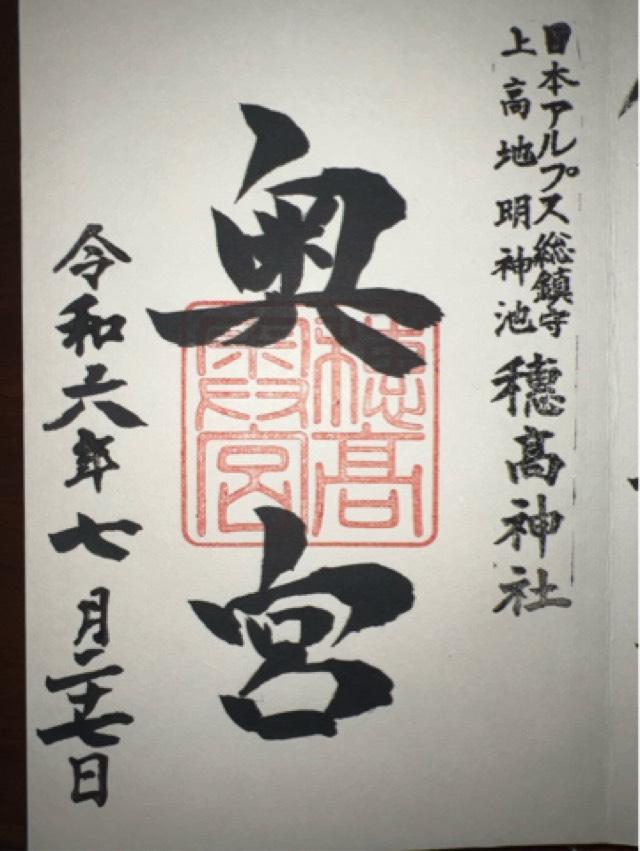 日本アルプス総鎮守
上高地明神池
穂髙神社
奥宮
穂高
奥宮
令和六年七月二十七日